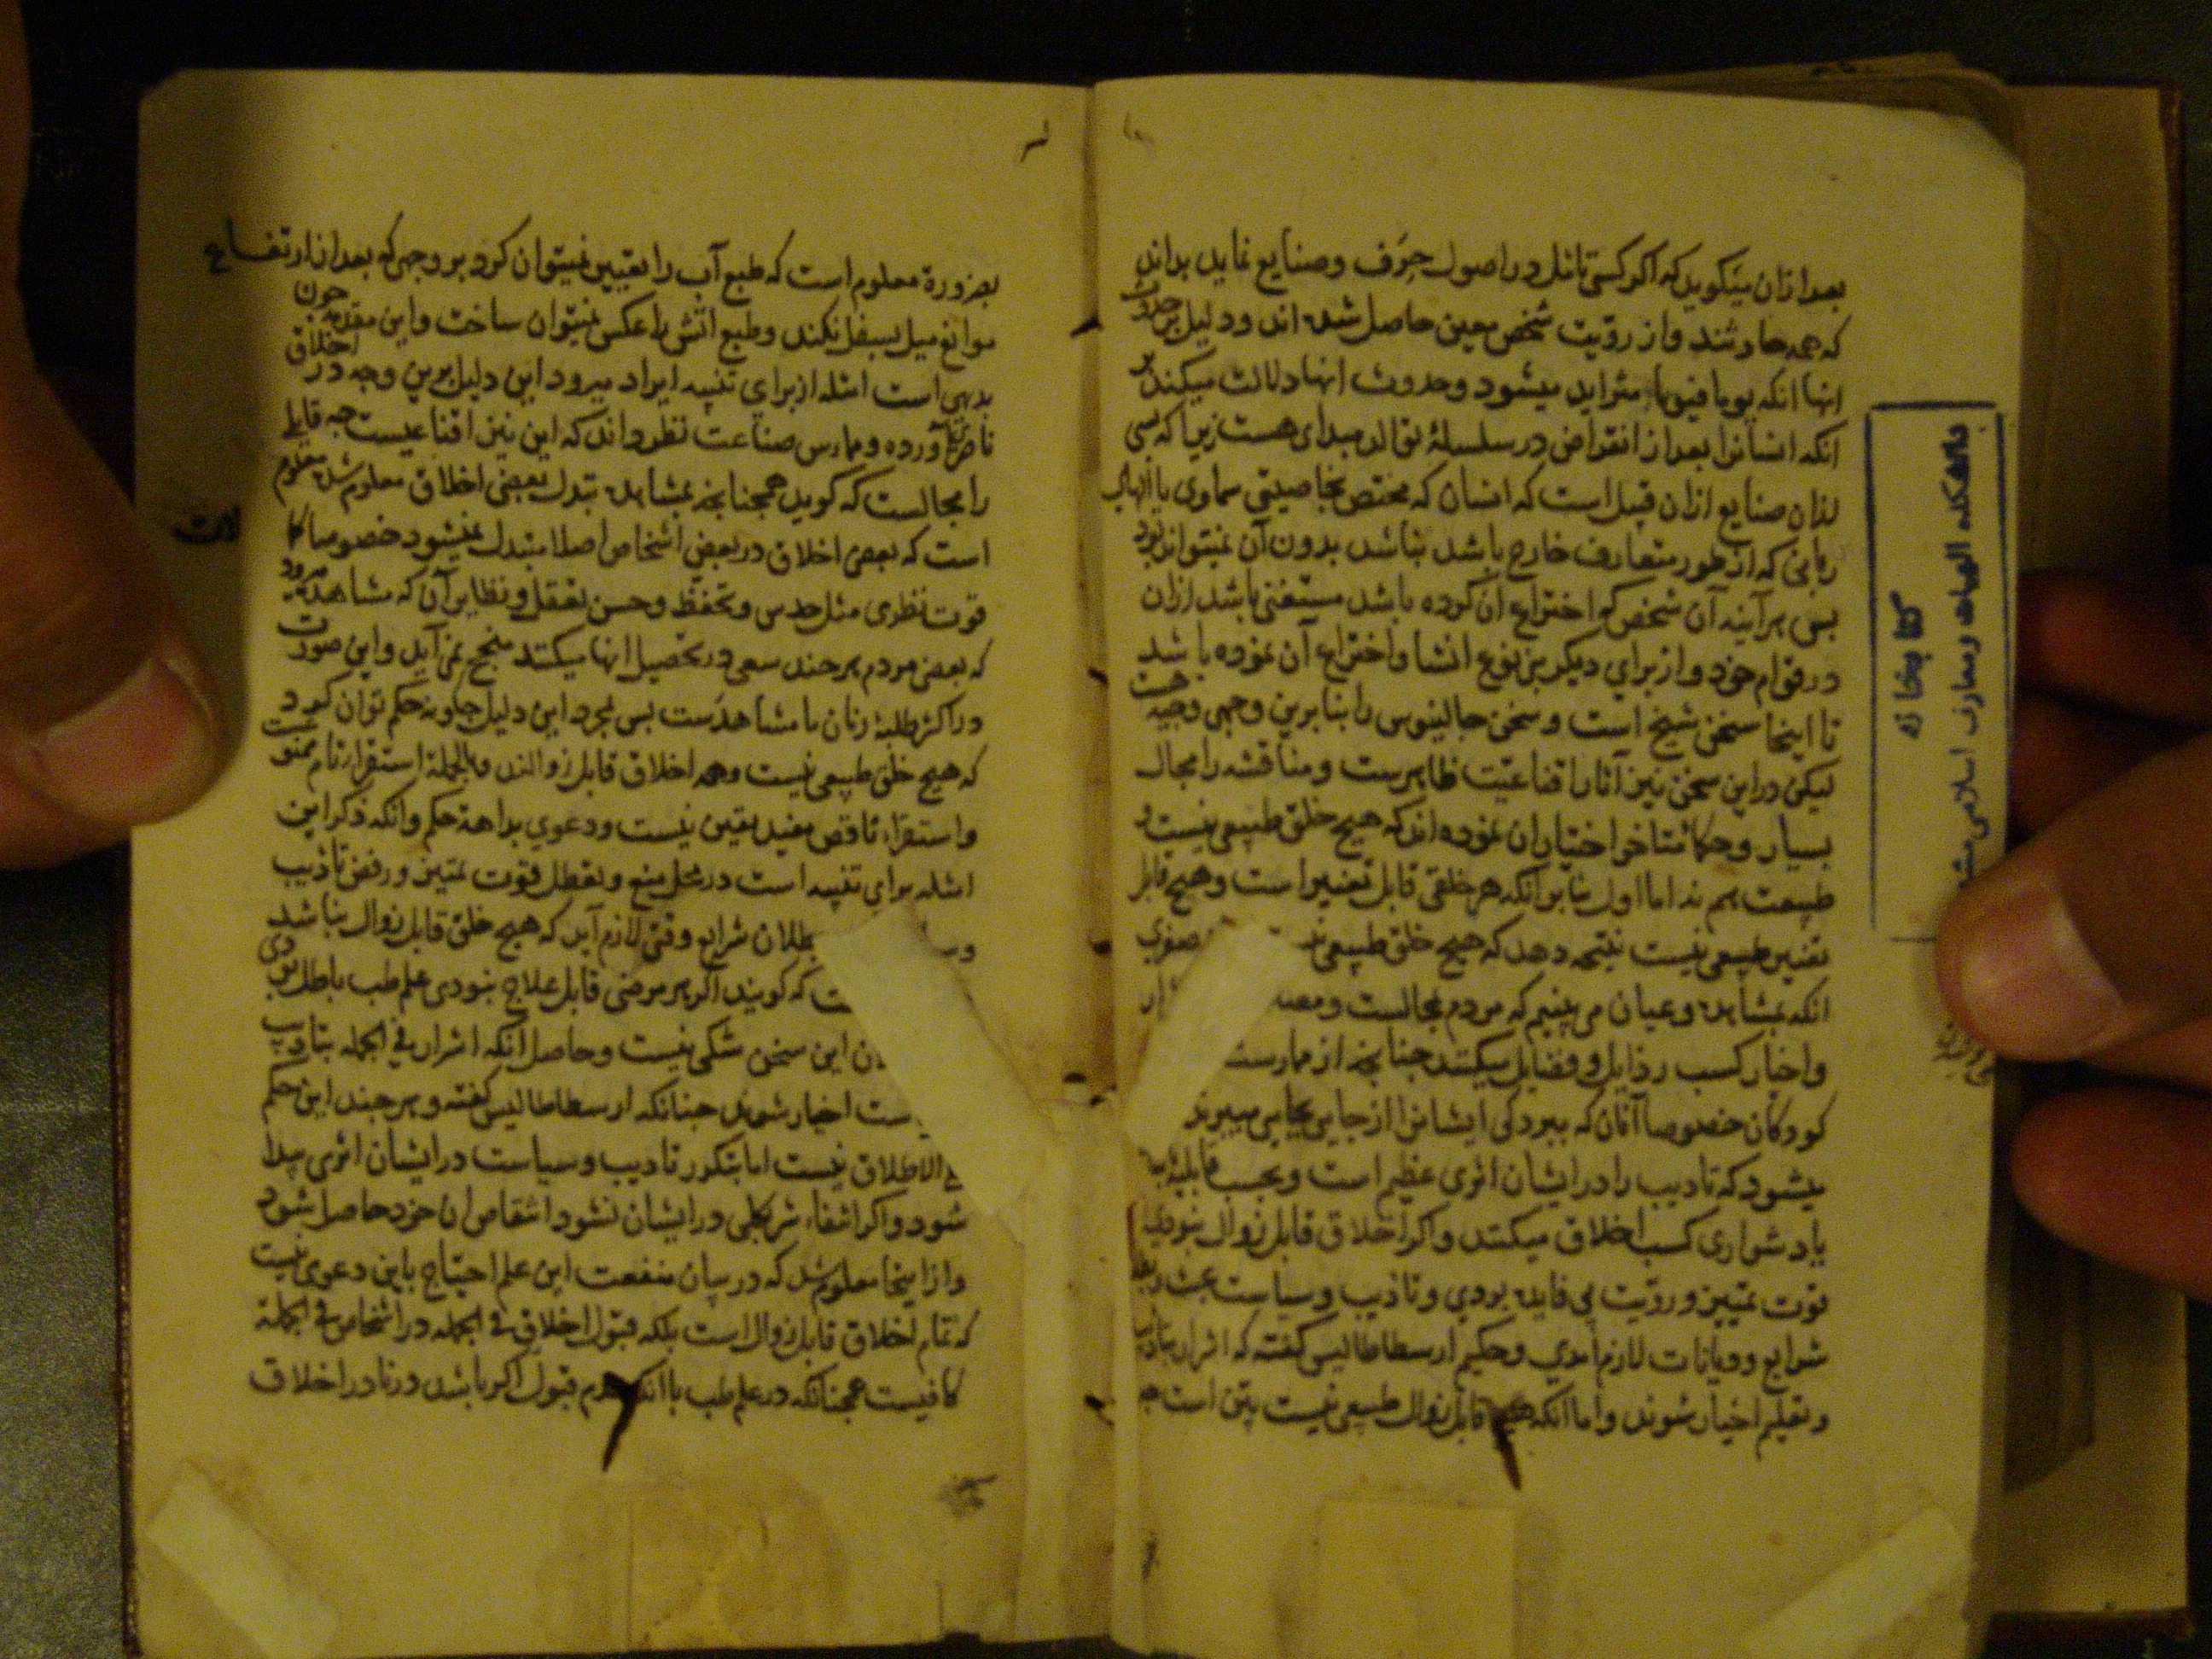 بعد ازان میگوید که اگر کسی تأمل در اصول حِرَف و صنایع نماید بداند
که همه حادثند و از رویّت شخص معین حاصل شده اند و دلیل بر حدوث
انها انکه یوما فیوما متزاید میشود و حدوث انها دلالت میکند بر
انکه انسانرا بعد از انقراض در سلسلهٔ توالد مبدای هست زیرا که بسی
ازان صنایع ازان قبیل است که انسان که مختص بخاصیتی سماوی یا الهامی
ربانی که از طور متعارف خارج باشد نباشد بدون آن نمیتواند بود
پس هرآینه آن شخص که اختراع آن کرده باشد مستغنی باشد ازان
در قوام خود و از برای دیگر بنی نوع انشا و اختراع آن نموده باشد
تا اینجا سخن شیخ است و سخن جالینوس را بنا برین وجهی وجیه هست
لیکن در این سخن نیز آثار اقناعیّت ظاهرست و مناقشه را مجال
بسیار و حکماء متأخر اختیار ان نموده اند که هیچ خلق طبیعی نیست و
طبیعت هم نه اما اول بنا بر انکه هر خلقی قابل تغییر است و هیچ قابل
تغییر طبیعی نیست نتیجه دهد که هیچ خلق طبیعی صغری
انکه بمشاهده و عیان می بینیم که مردم بمجالست
و اخیار کسب رذایل و فضایل میکنند چنانچه از ممارست
کودکان خصوصا آنان که ببردگی ایشانرا از جایی بجایی میبرند
میشود که تادیب را در ایشان اثری عظیم است و بحسب قابلیت
یا دشواری کسب اخلاق میکنند و اگر اخلاق قابل زوال نبودی
قوت تمییز و رویّت بی فایده بودی و تأدیب و سیاست عبث
شرایع و دیانات لازم آمدی و حکیم ارسطاطالیس گفته که اشرار بتادیب
و تعلیم اخیار شوند و اما انکه هیچ قابل زوال طبیعی نیست بیّن است چه
کتابخانه
دانشکده الهیات و معارف اسلامی
بضرورة معلوم است که طبع آب را تغییر نمیتوان کرد بر وجهی که بعد از ارتفاع
موانع میل بسفل نکند و طبع اتش را عکس نمیتوان ساخت و این مقدمه چون
بدیهی است امثله از برای تنبیه ایراد میرود این دلیل برین وجه در اخلاق
ناصری آورده و ممارس صناعت نظر داند که این نیز اقناعیست چه قایل
را مجالست که گوید همچنانچه بمشاهده تبدل بعضی اخلاق معلوم شد معلوم
است که بعضی اخلاق در بعضی اشخاص اصلا متبدل نمیشود خصوصا کمالات
قوت نظری مثل حدس و تحفظ و حسن تعقل و نظایر آن که مشاهده میرود
که بعضی مردم هر چند سعی در تحصیل انها میکنند منجح نمی آید و این صورت
در اکثر طلبهٔ زمان ما مشاهدَست پس بمجرد این دلیل چگونه حکم توان کرد
که هیچ خلق طبیعی نیست و همه اخلاق قابل زوالند و بالجملة استقراء تام ممنوعست
و استقراء ناقص مفید یقین نیست و دعوی بداهة حکم و انکه ذکر این
امثله برای تنبیه است در محل منع و تعطل قوت تمییز و رفض تأدیب
بطلان شرایع وقتی لازم آید که هیچ خلق قابل زوال نباشد
که گویند اگر هر مرضی قابل علاج نبودی علم طب باطل بودی
این سخن شکی نیست و حاصل انکه اشرار فی الجمله بتادیب
اخیار شوند چنانکه ارسطاطالیس گفته و هر چند این حکم
الاطلاق نیست اما بتکرر تادیب و سیاست در ایشان اثری پیدا
شود و اگر انتفاء شر کلی در ایشان نشود انتقاص ان خود حاصل شود
و از اینجا معلوم شد که در بیان منفعت این علم احتیاج باین دعوی نیست
که تمام اخلاق قابل زوال است بلکه قبول اخلاق فی الجمله در اشخاص فی الجملة
کافیست همچنانکه در علم طب با انکه عدم قبول اگر باشد در نادر اخلاق